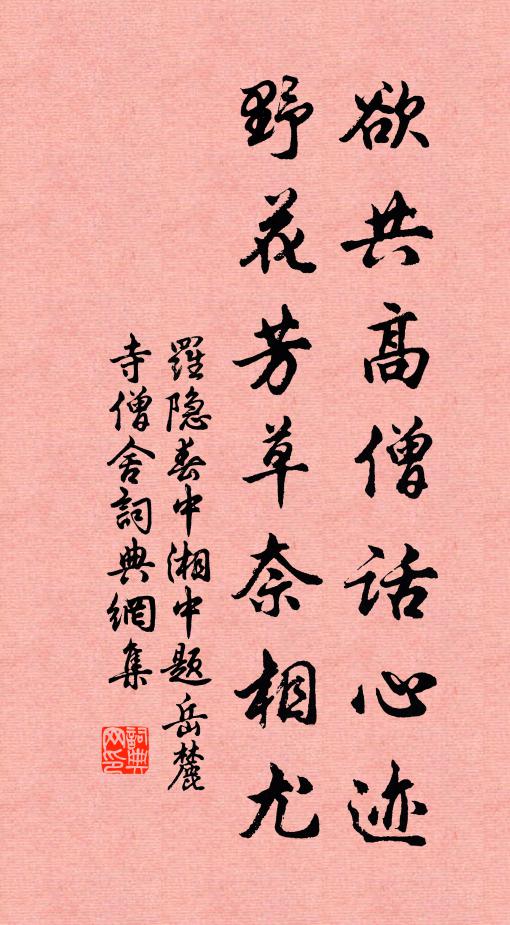 欲共高僧话心迹
野花芳草奈相尤
羅隐春中湘中题岳麓
寺僧舍詞典網集
詞典网印